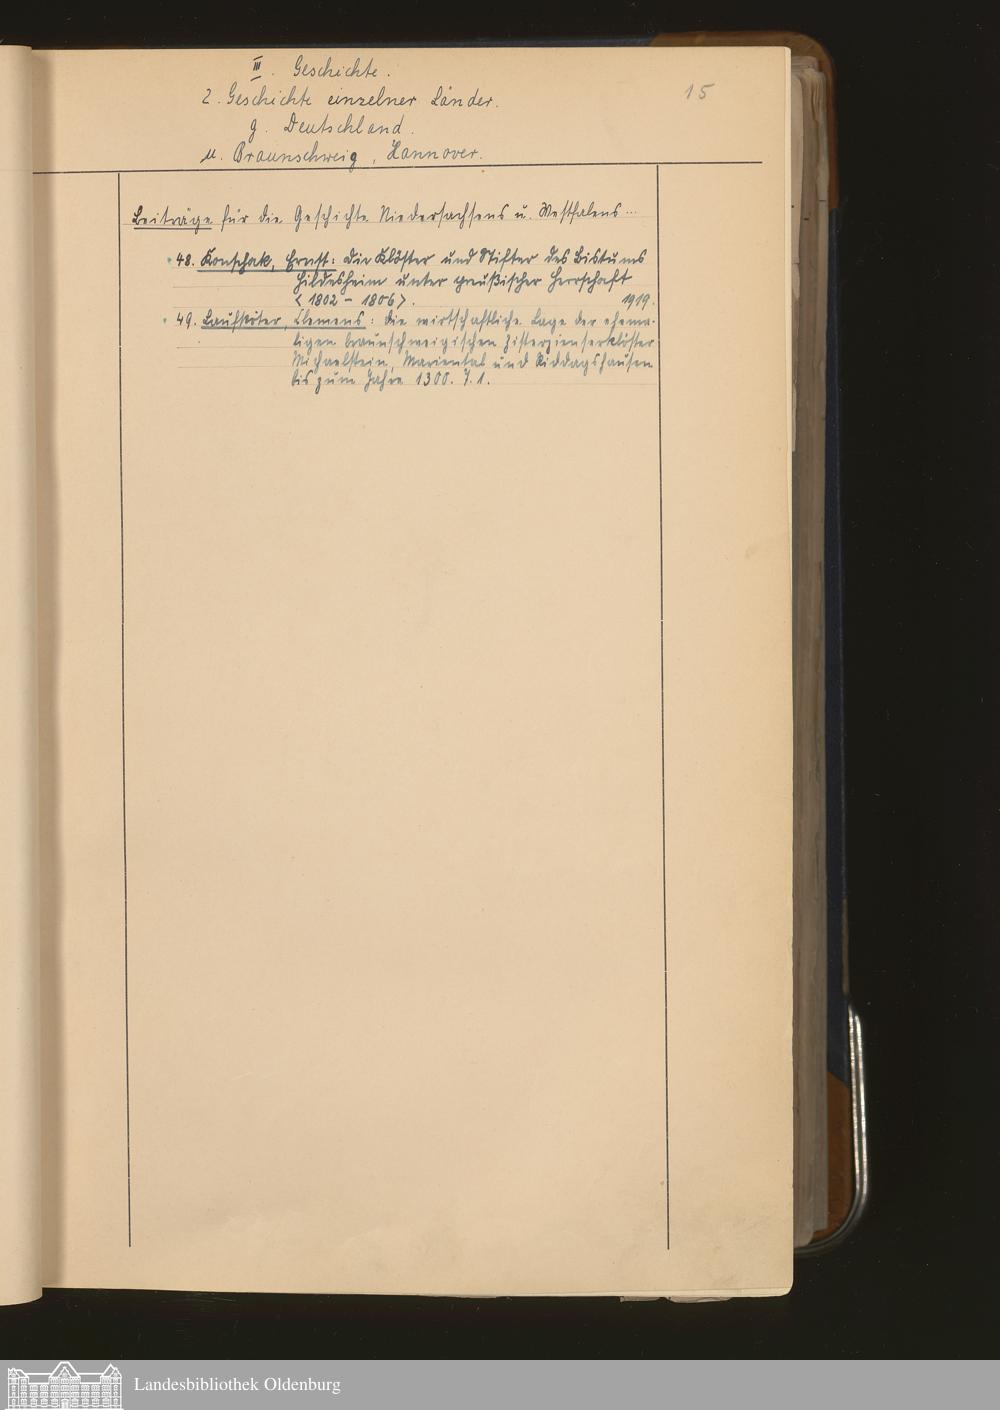 III. Geschichte.
2. Geschichte einzelner Länder.
15
g. Deutschland.
u. Braunschweig, Hannover.
Beiträge für die Geschichte Niedersachsens u. Westfalens ...
48. Konschak, Ernst: Die Klöster und Stifter des Bistums
Hildesheim unter preußischer Herrschaft
<1802 - 1806>. 1919.
49. Laufköter, Clemens: Die wirtschaftliche Lage der ehema-
ligen braunschweigischen Zisterzienserklöster
Michaelstein, Mariental und Riddagshausen
bis zum Jahre 1300. T. 1.
Landesbibliothek Oldenburg